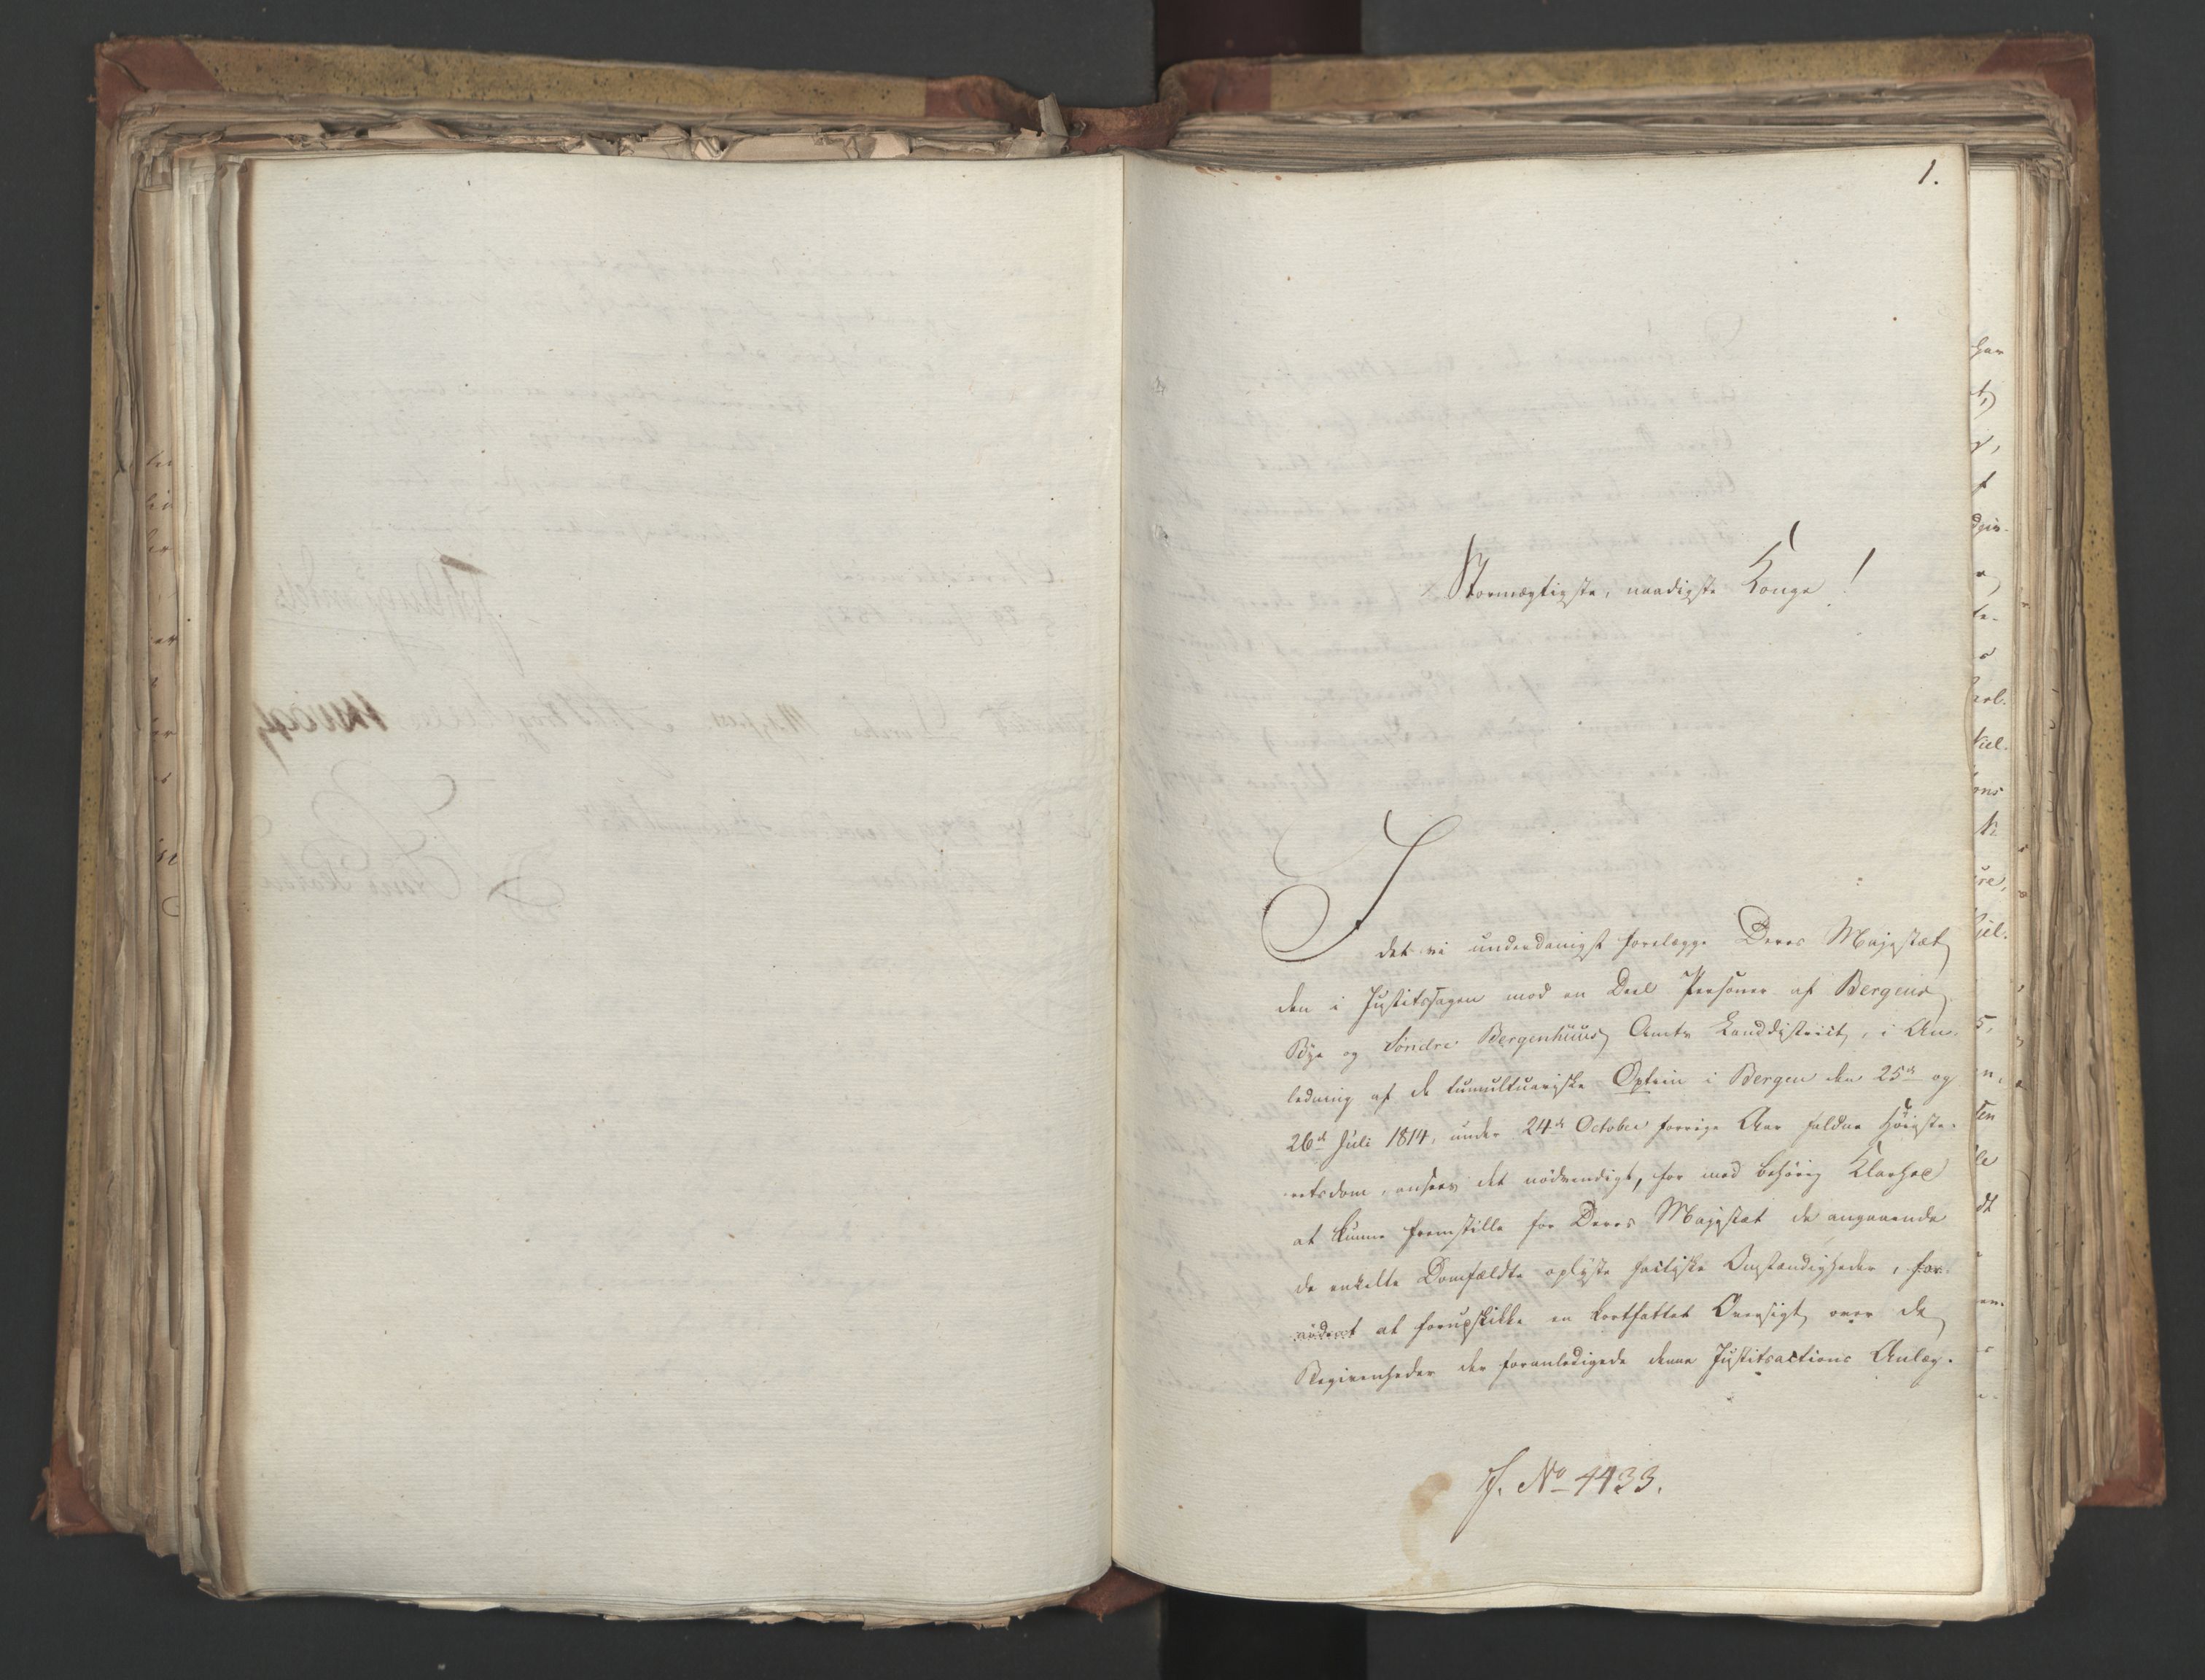 1.
Stormægtigste, naadigste Konge!
Idet vi underdanigst forelægge Deres Majestæt
den i Justitssagen mod en Deel Personer af Bergens
Bye og Søndre Bergenhuus Amts Landdistrict, i An-
ledning af de tumultuariske Optrin i Bergen den 25de og
26de Juli 1814, under 24de October forrige Aar faldne Høieste-
retsdom, ansees det nødvendigt, for med behørig Klarhed
at kunne fremstille for Deres Majestæt de angaaende
de enkelte Domfældte oplyste factiske Omstændigheder, for-
at forudskikke en kortfattet Oversigt over de
Begivenheder der foranledigede denne Justitsactions Anlæg.
J. No 4433.